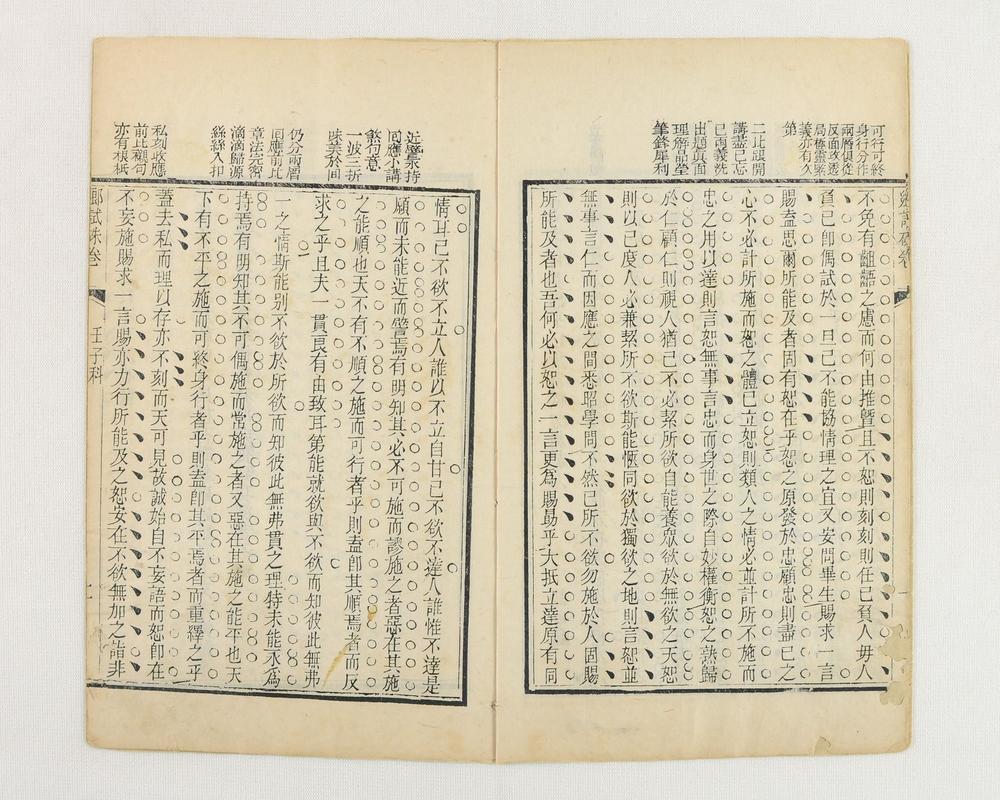 可行可終
身行分作
兩層俱從
反面攻透
局陣靈緊
義亦有久
第
二比題開
講盡己忘
已兩義洗
出題真面
理解晶瑩
筆鋒犀利
不免有齟齬之慮而何由推暨且不恕則刻刻則任己負人毋人
負己卽偶試於一旦已不能協情理之宜又安問畢生賜求一言
賜盍思爾所能及者固有恕在乎恕之原發於忠顧忠則盡己之
心不必計所施而恕之體已立恕則類人之情必並計所不施而
忠之用以達則言恕無事言忠而身世之際自妙權衡恕之熟歸
於仁顧仁則視人猶己不必絜所欲自能養眾欲於無欲之天恕
則以己度人必兼絜所不欲斯能愜同欲於獨欲之地則言恕並
無事言仁而因應之間悉昭學問不然己所不欲勿施於人固賜
所能及者也吾何必以恕之一言更爲賜勗乎大抵立達原有同
同應小講
煞句意
一波三折
味美於回
仍分兩層
回應前比
章法完密
滴滴歸源
絲絲入扣
私刻收應
前比
亦有根柢
情耳己不欲不立人誰以不立自甘己不欲不達人誰惟不達是
願而未能近而譬焉有明知其必不可施而謬施之者惡在其施
之能順也天不有不順之施而可行者乎則盍卽其順焉者而反
求之乎且夫一貫良有由致耳第能就欲與不欲而知彼此無弗
一之情斯能别不欲於所欲而知彼此無弗貫之理特未能永爲
持焉有明知其不可偶施而常施之者又惡在其施之能平也天
下有不平之施而可終身行者乎則盍卽其平焉者而重繹之乎
蓋去私而理以存亦不刻而天可見故誠始自不妄語而恕卽在
不妄施賜求一言賜亦力行所能及之恕安在不欲無加之詣非
鄉試硃卷
壬子科